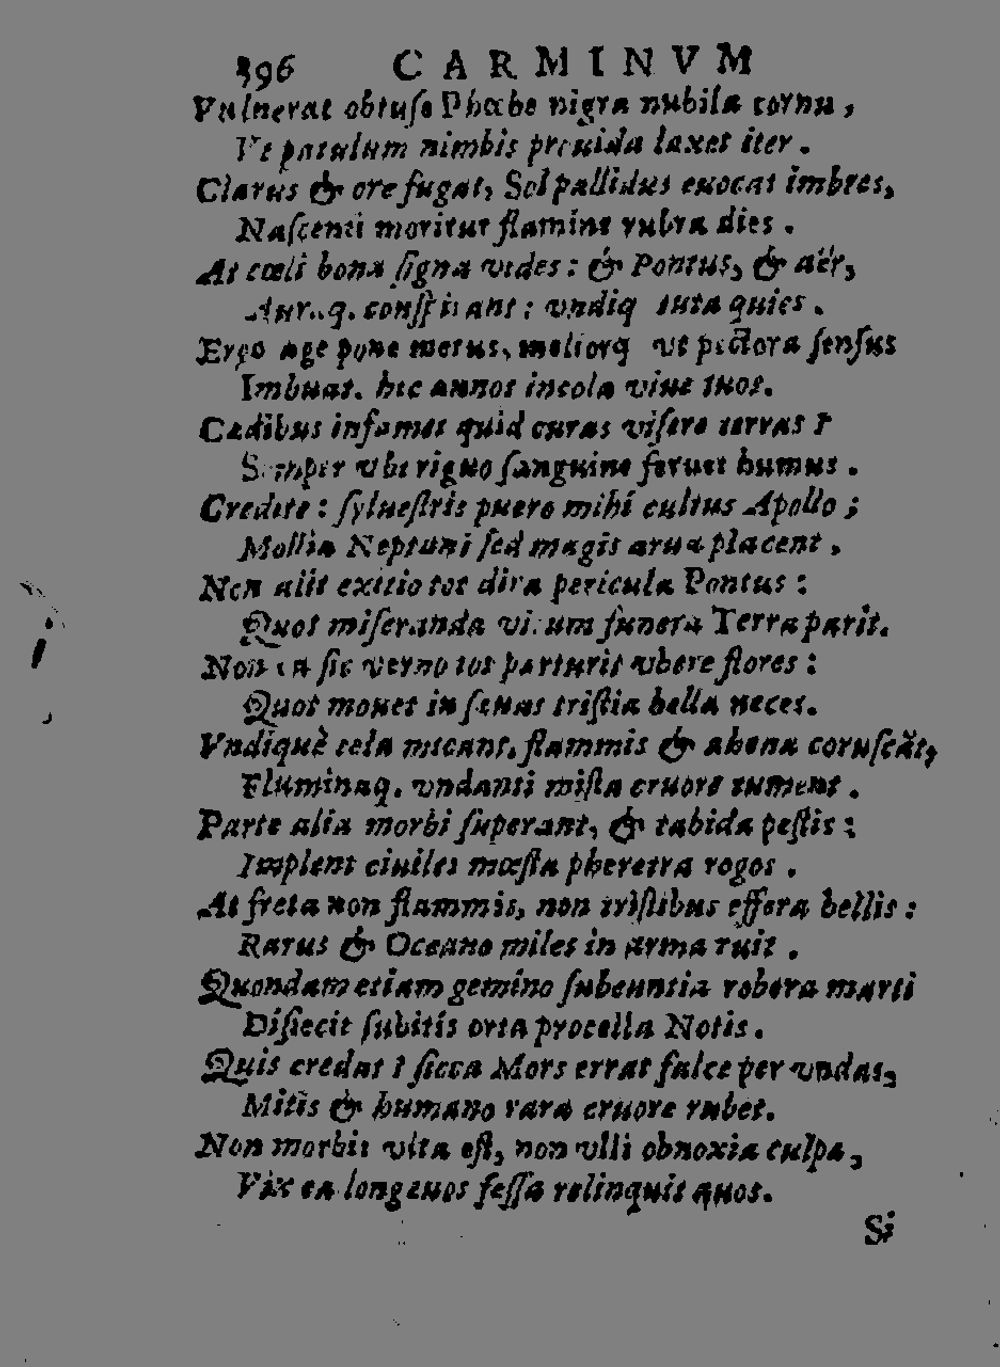 396 CARMINVM
Vulnerat obtuſo Phœbe nigra nubila cornu,
Vt patulum nimbis preuida laxet iter.
Clarus & ore fugat, Sol pallidus euocat imbres,
Naſcenti moritur flamine rubra dies.
At cœli bona ſigna vides: & Pontus, & aër,
conſpirant: vndiq tuta quies.
Ergo age pone metus, meliorq vt pectora ſenſus
Imbuat. hic annos incola viue tuos.
Cædibus infames quid curas viſere terras?
Semper vbi riguo ſanguine feruet humus.
Credite: ſylueſtris puero mihi cultus Apollo;
Mollia Neptuni ſed magis arua placent.
Non aliis exitio tot dira pericula Pontus:
Quot miſeranda virum funera Terra parit.
Non ea ſic verno tot parturit vbere flores:
Quot mouet in ſæuas triſtia bella neces.
Vndiquè tela micant, flammis & ahena coruſcãt,
Fluminaq. vndanti miſta cruore tument.
Parte alia morbi ſuperant, & tabida peſtis:
Implent ciuiles mœſta pheretra rogos.
At freta non flammis, non triſtibus effera bellis:
Rarus & Oceano miles in arma ruit.
Quondam etiam gemino ſubeuntia robora marti
Diſiecit ſubitis orta procella Notis.
Quis credat? ſicca Mors errat falce per vndas,
Mitis & humano rara cruore rubet.
Non morbis vita eſt, non vlli obnoxia culpa,
Vix ea longæuos feſſa relinquit auos.
Si